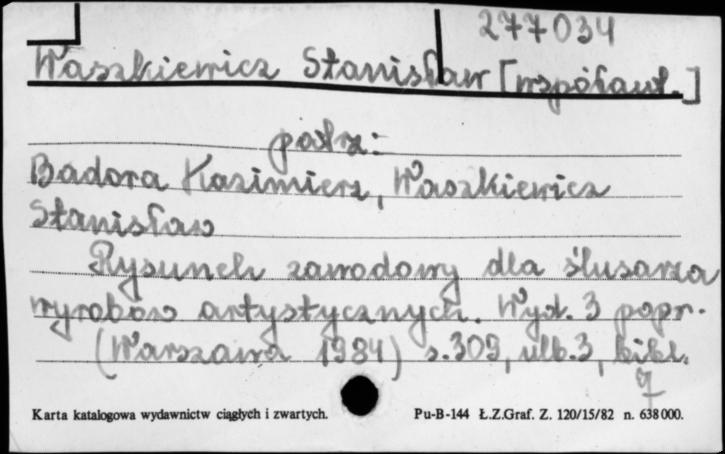 277034
Waszkiewicz Stanisław [współaut.]
patrz:
Badora Kazimierz, Waszkiewicz
Stanisław
Rysunek zawodowy dla ślusarza
wyrobów artystycznych. Wyd. 3 popr.
(Warszawa 1984) s.309, ulb.3, bibl.
7
Karta katalogowa wydawnictw ciągłych i zwartych. Pu-B-144 Ł.Z.Graf. Z. 120/15/82 n. 638 000.